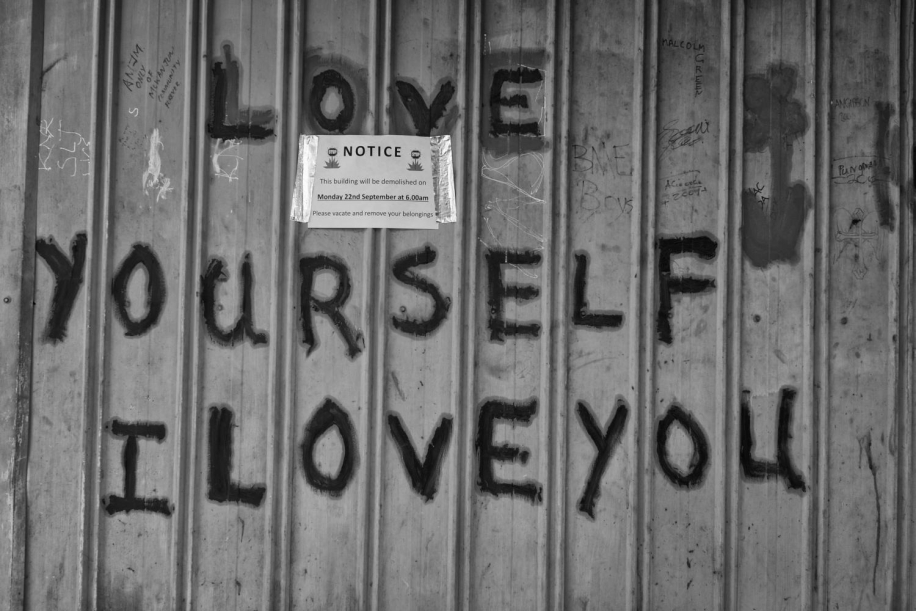 LOVE
NOTICE
This building will be demolished on
Monday 22nd September at 6.00am
Please vacate and remove your belongings
YOURSELF
I LOVE YOU
MALCOLM
GREER
BNE
BOYS